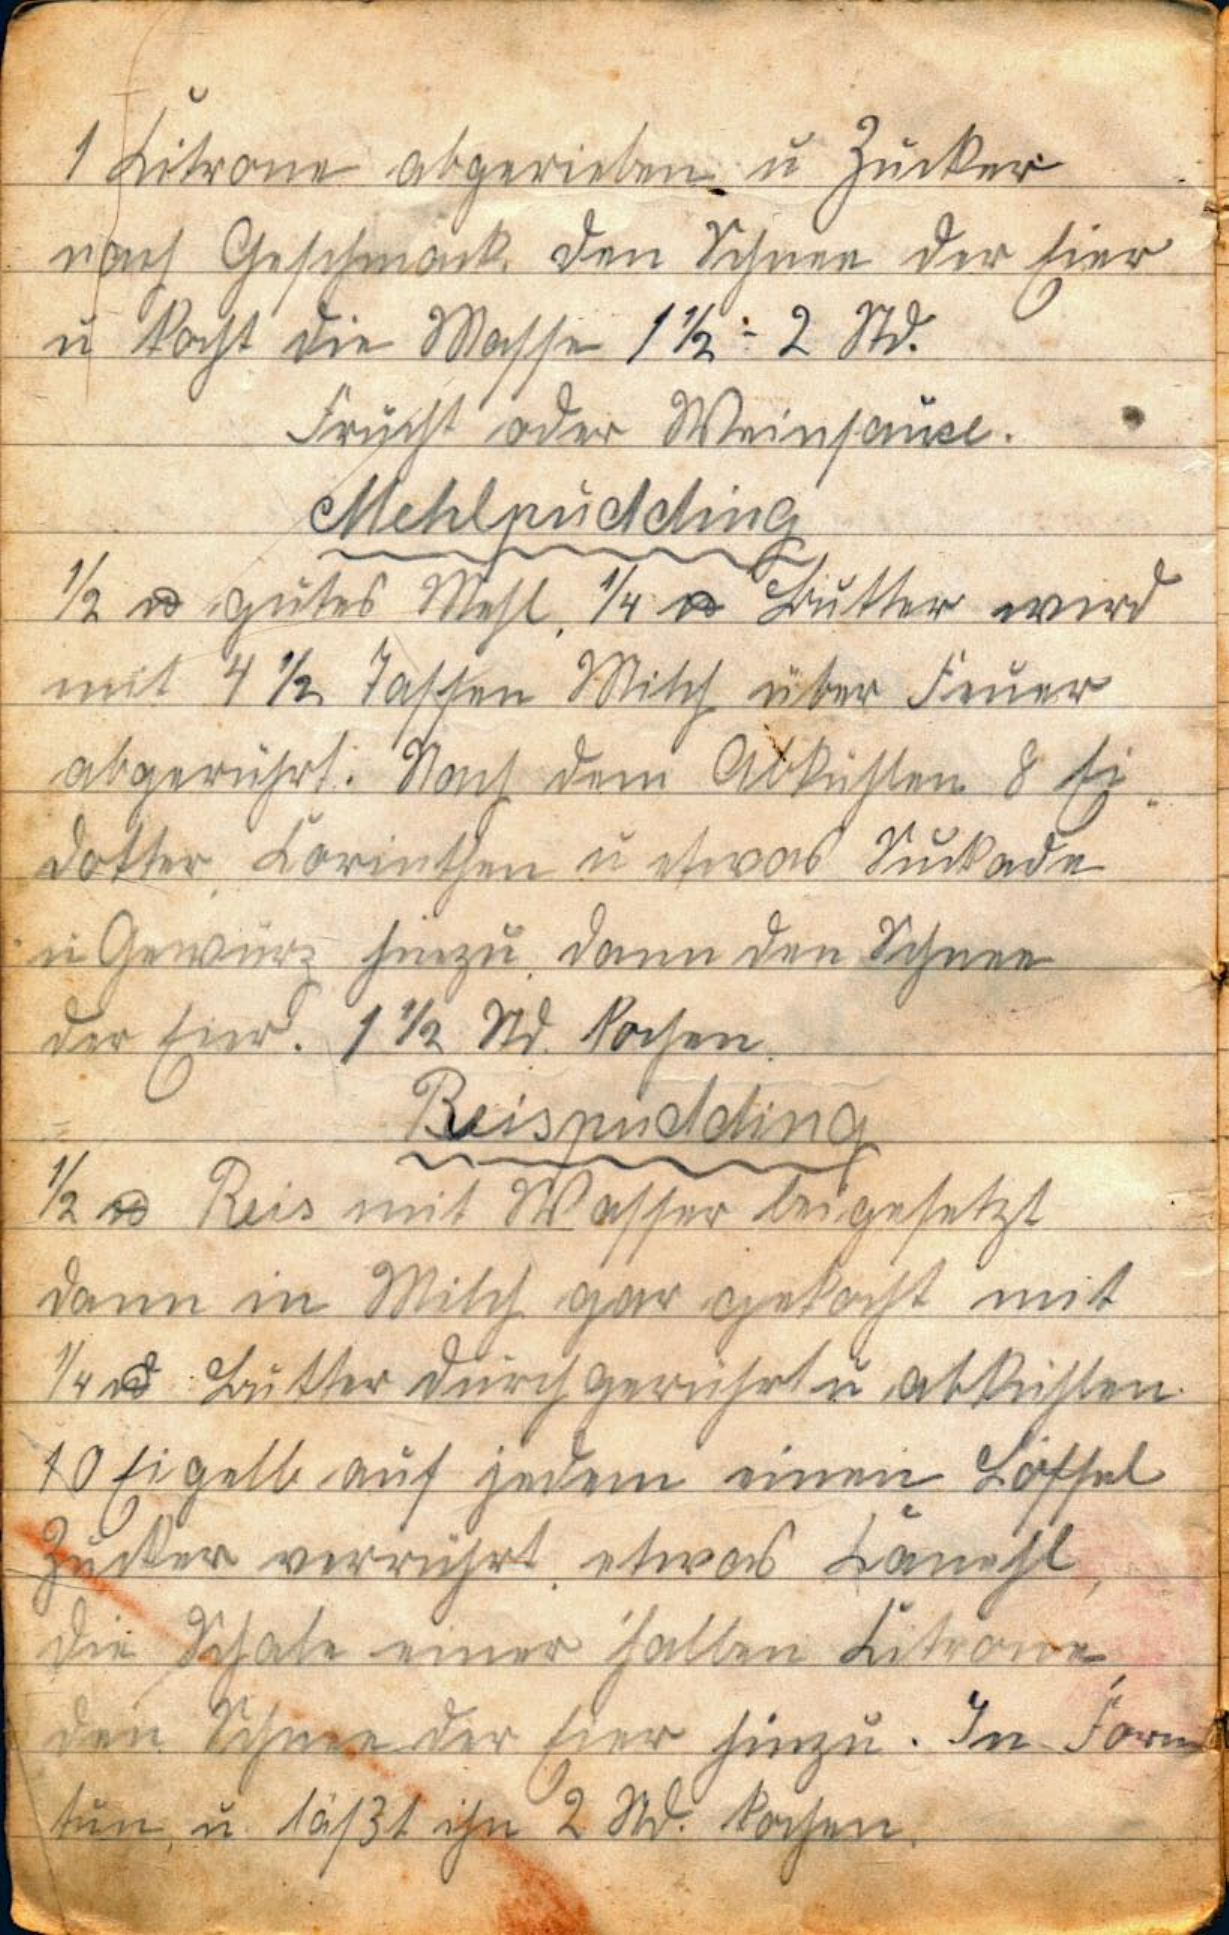 1 Citrone abgerieben u Zucker
nach Geschmack. den Schnee der Eier
u kocht die Masse 1 1/2 - 2 Std.
Frucht oder Weinsauce.
Mehlpudding
1/2 ℔ gutes Mehl, 1/4 ℔ Butter wird
mit 4 1/2 Tassen Milch über Feuer
abgerührt. Nach dem Abkühlen 8 Ei
dotter, Corinthen u etwas Suckade
u Gewürz hinzu, dann den Schnee
der Eier. 1 1/2 Std. kochen.
Reispudding
1/2 ℔ Reis mit Wasser beigesetzt
dann in Milch gar gekocht mit
1/4 ℔ Butter durchgerührt u abkühlen.
10 Eigelb auf jedem einen Löffel
Zucker verrührt, etwas Canehl,
die Schale einer halben Citrone,
den Schnee der Eier hinzu. In Form
tun, u. läßt ihn 2 Std. kochen.